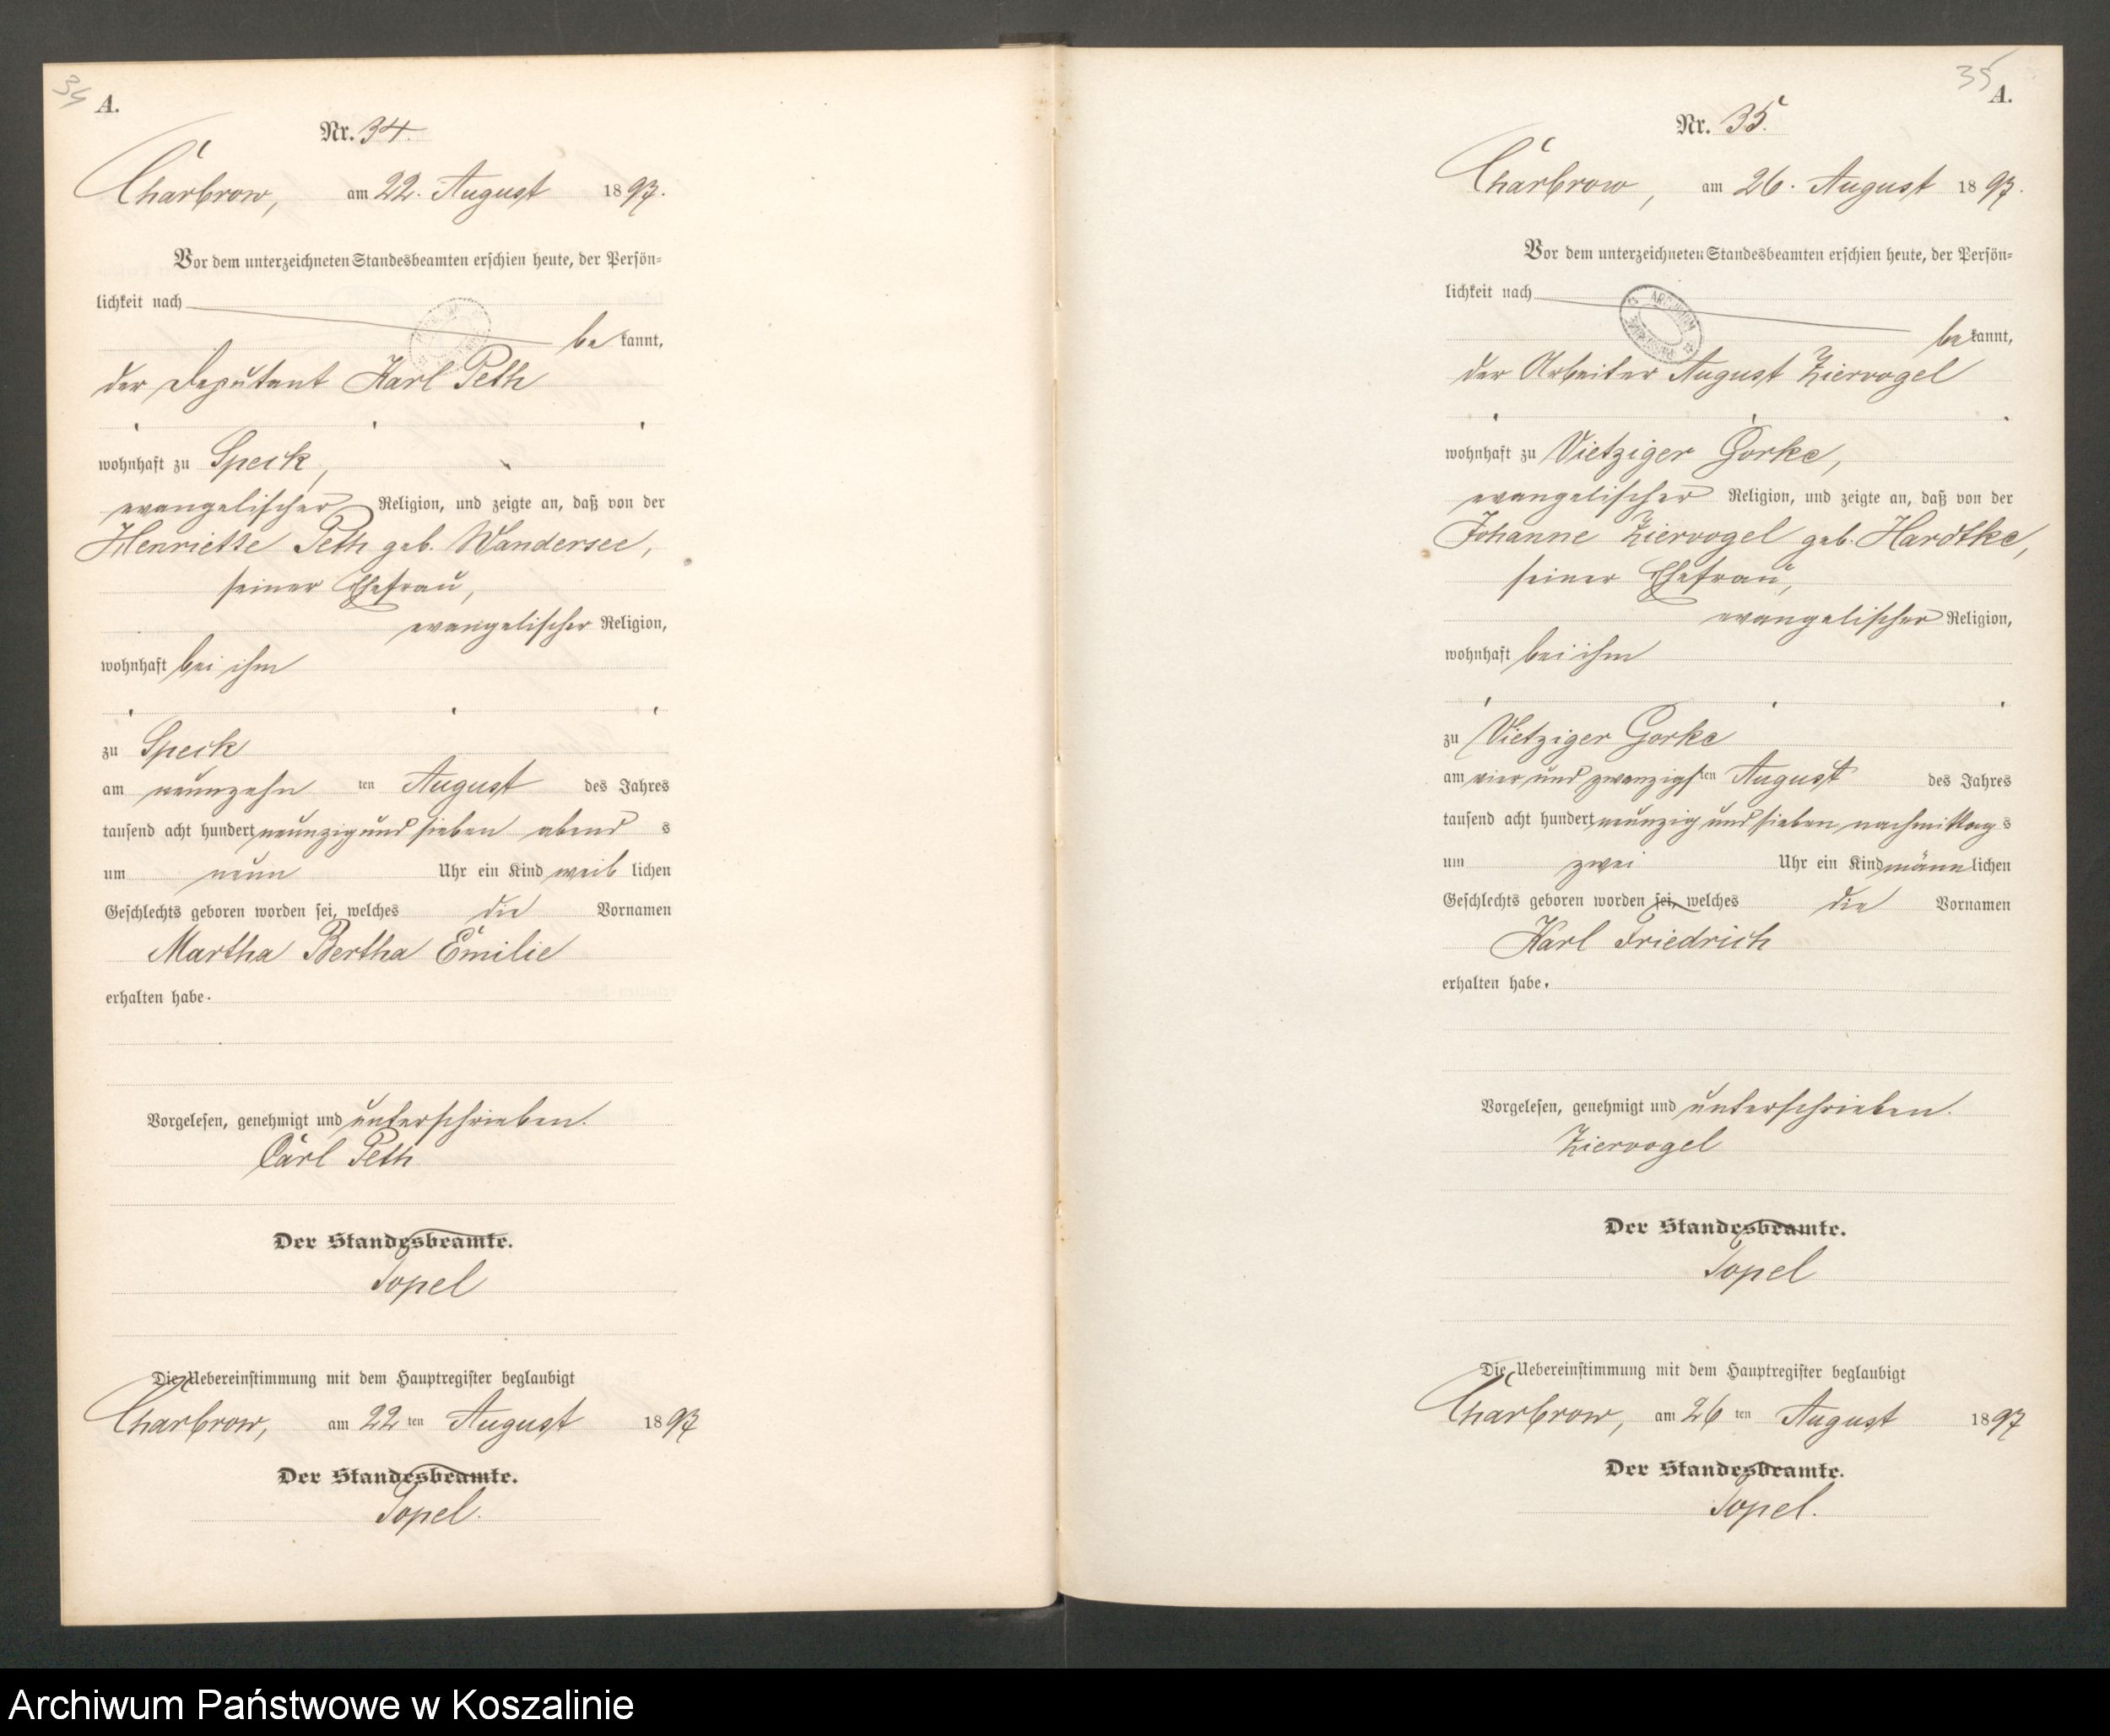 34
A.
Nr. 34.
Charbrow, am 22. August 1897.
Vor dem unterzeichneten Standesbeamten erschien heute, der Persön-
lichkeit nach
be kannt,
der Deputant Karl Peth
wohnhaft zu Speck,
evangelischer Religion, und zeigte an, daß von der
Henriette Peth geb. Wandersee,
seiner Ehefrau,
evangelischer Religion,
wohnhaft bei ihm
zu Speck
am neunzehn ten August des Jahres
tausend acht hundert neunzig und sieben abend s
um neun Uhr ein Kind weib lichen
Geschlechts geboren worden sei, welches die Vornamen
Martha Bertha Emilie
erhalten habe.
Vorgelesen, genehmigt und unterschrieben.
Carl Peth
Der Standesbeamte.
Topel
Die Uebereinstimmung mit dem Hauptregister beglaubigt
Charbrow, am 22 ten August 1897
Der Standesbeamte.
Topel.
35
A.
Nr. 35.
Charbrow, am 26. August 1897.
Vor dem unterzeichneten Standesbeamten erschien heute, der Persön-
lichkeit nach
be kannt,
der Arbeiter August Ziervogel
wohnhaft zu Vietziger Gorke,
evangelischer Religion, und zeigte an, daß von der
Johanne Ziervogel geb. Hardtke,
seiner Ehefrau,
evangelischer Religion,
wohnhaft bei ihm
zu Vietziger Gorke
am vier und zwanzigs ten August des Jahres
tausend acht hundert neunzig und sieben nachmittag s
um zwei Uhr ein Kind männ lichen
Geschlechts geboren worden sei, welches die Vornamen
Karl Friedrich
erhalten habe.
Vorgelesen, genehmigt und unterschrieben.
Ziervogel
Der Standesbeamte.
Topel
Die Uebereinstimmung mit dem Hauptregister beglaubigt
Charbrow, am 26 ten August 1897
Der Standesbeamte.
Topel.
Archiwum Państwowe w Koszalinie